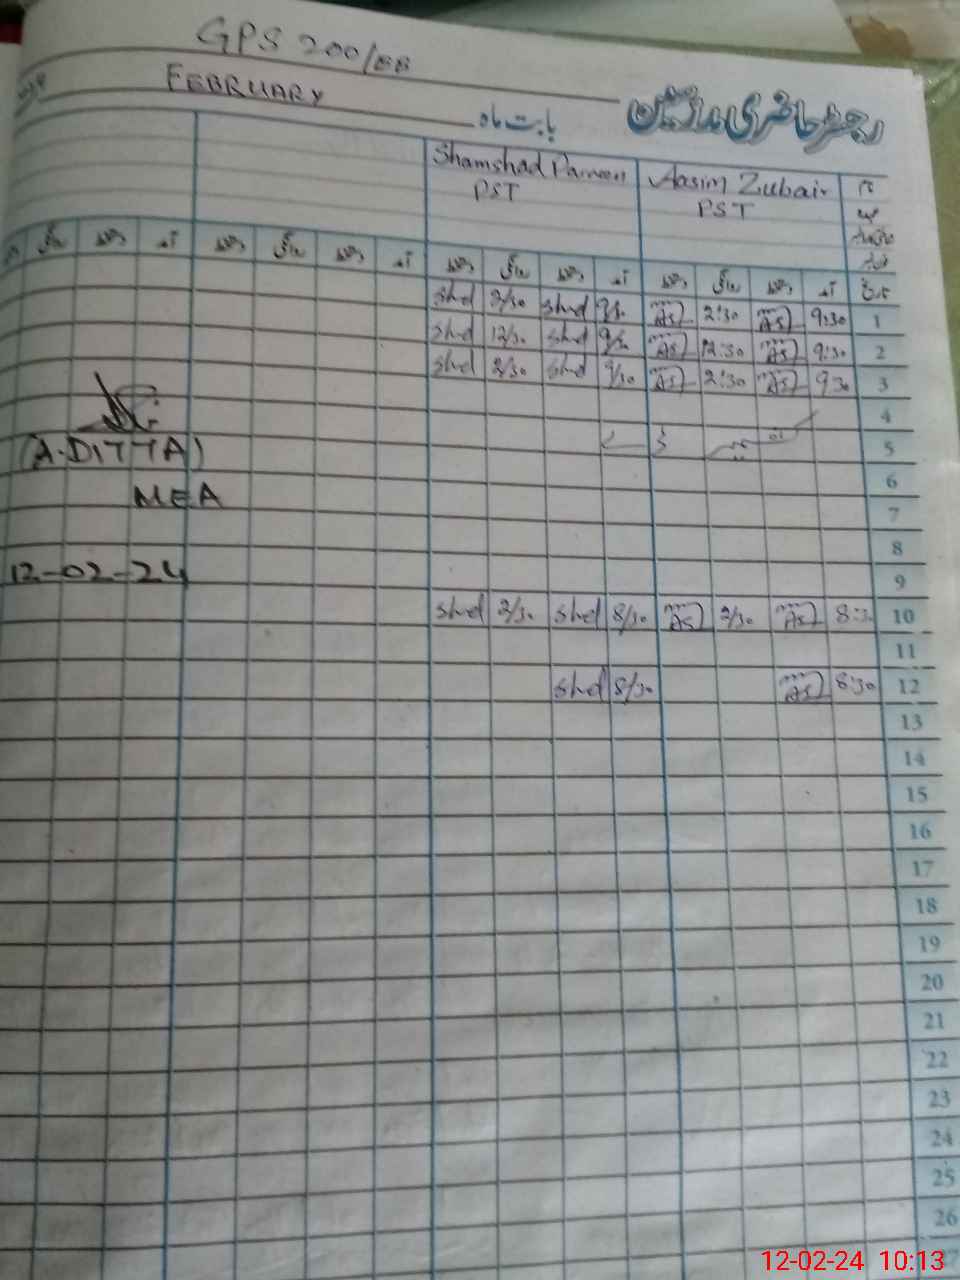 GPS 200/EB
FEBRUARY
رجسٹر حاضری مدرسین
بابت ماہ
Shamshad Parveen Aasim Zubair نام
PST PST
دستخط روانگی دستخط آمد دستخط روانگی دستخط آمد دستخط روانگی دستخط آمد تاریخ
Shd 2/30 Shd 9/30 2:30 9:30 1
Shd 12/30 Shd 9/30 12:30 9:30 2
Shd 2/30 Shd 9/30 2:30 9:30 3
4
(A.DITTA) 5
6
MEA 7
8
12-02-24 9
Shd 2/30 Shd 8/30 2/30 8:30 10
11
Shd 8/30 8:30 12
13
14
15
16
17
18
19
20
21
22
23
24
25
26
12-02-24 10:13